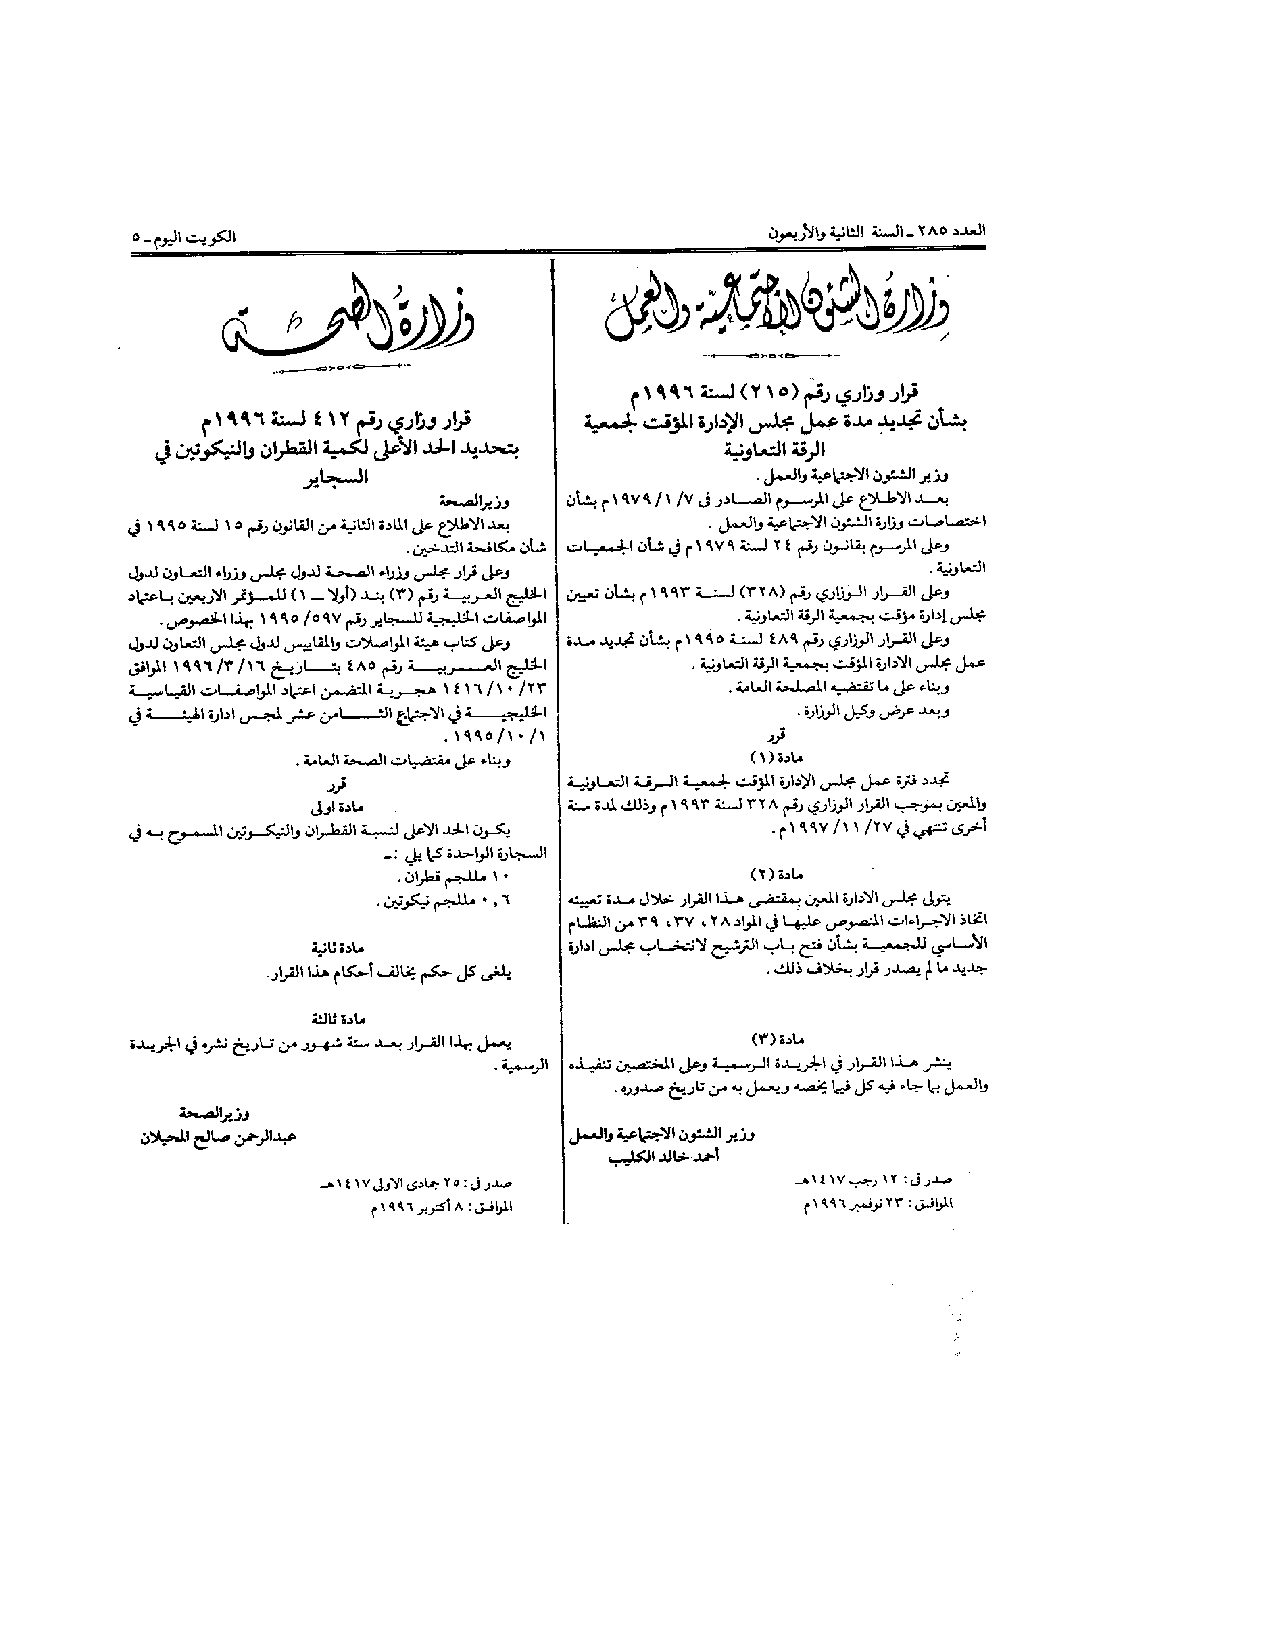 العدد ٢٨٥ - السنة الثانية والأربعون
الكويت اليوم - ٥
وزارة الشئون الاجتماعية والعمل
قرار وزاري رقم (٢١٥) لسنة ١٩٩٦م
بشأن تجديد مدة عمل مجلس الإدارة المؤقت لجمعية
الرقة التعاونية
وزير الشئون الاجتماعية والعمل .
بعد الاطلاع على المرسوم الصادر في ٧/ ١/ ١٩٧٩م بشأن
اختصاصات وزارة الشئون الاجتماعية والعمل .
وعلى المرسوم بقانون رقم ٢٤ لسنة ١٩٧٩م في شأن الجمعيات
التعاونية .
وعلى القرار الوزاري رقم (٣٢٨) لسنة ١٩٩٣م بشأن تعيين
مجلس إدارة مؤقت بجمعية الرقة التعاونية .
وعلى القرار الوزاري رقم ٤٨٩ لسنة ١٩٩٥م بشأن تجديد مدة
عمل مجلس الادارة المؤقت بجمعية الرقة التعاونية .
وبناء على ما تقتضيه المصلحة العامة .
وبعد عرض وكيل الوزارة .
قرر
مادة (١)
تجدد فترة عمل مجلس الإدارة المؤقت لجمعية الرقة التعاونية
والمعين بموجب القرار الوزاري رقم ٣٢٨ لسنة ١٩٩٣م وذلك لمدة سنة
أخرى تنتهي في ٢٧/ ١١/ ١٩٩٧م .
مادة (٢)
يتولى مجلس الادارة المعين بمقتضى هذا القرار خلال مدة تعيينه
اتخاذ الاجراءات المنصوص عليها في المواد ٢٨، ٣٧، ٣٩ من النظام
الأساسي للجمعية بشأن فتح باب الترشيح لانتخاب مجلس ادارة
جديد ما لم يصدر قرار بخلاف ذلك .
مادة (٣)
ينشر هذا القرار في الجريدة الرسمية وعلى المختصين تنفيذه
والعمل بما جاء فيه كل فيما يخصه ويعمل به من تاريخ صدوره .
وزير الشئون الاجتماعية والعمل
أحمد خالد الكليب
صدر في : ١٢ رجب ١٤١٧هـ
الموافق : ٢٣ نوفمبر ١٩٩٦م
وزارة الصحة
قرار وزاري رقم ٤١٢ لسنة ١٩٩٦م
بتحديد الحد الأعلى لكمية القطران والنيكوتين في
السجاير
وزير الصحة
بعد الاطلاع على المادة الثانية من القانون رقم ١٥ لسنة ١٩٩٥ في
شأن مكافحة التدخين .
وعلى قرار مجلس وزراء الصحة لدول مجلس وزراء التعاون لدول
الخليج العربية رقم (٣) بند (أولا - ١) للمؤتمر الاربعين باعتماد
المواصفات الخليجية للسجاير رقم ٥٩٧/ ١٩٩٥ بهذا الخصوص .
وعلى كتاب هيئة المواصلات والمقاييس لدول مجلس التعاون لدول
الخليج العربية رقم ٤٨٥ بتاريخ ١٦/ ٣/ ١٩٩٦ الموافق
٢٣/ ١٠/ ١٤١٦ هجرية المتضمن اعتماد المواصفات القياسية
الخليجية في الاجتماع الثامن عشر لمجس ادارة الهيئة في
١/ ١٠/ ١٩٩٥ .
وبناء على مقتضيات الصحة العامة .
قرر
مادة اولى
يكون الحد الاعلى لنسبة القطران والنيكوتين المسموح به في
السجارة الواحدة كما يلي :-
١٠ مللجم قطران .
٠,٦ مللجم نيكوتين .
مادة ثانية
يلغى كل حكم يخالف أحكام هذا القرار .
مادة ثالثة
يعمل بهذا القرار بعد ستة شهور من تاريخ نشره في الجريدة
الرسمية .
وزير الصحة
عبدالرحمن صالح المحيلان
صدر في : ٢٥ جمادى الاولى ١٤١٧هـ
الموافق : ٨ أكتوبر ١٩٩٦م